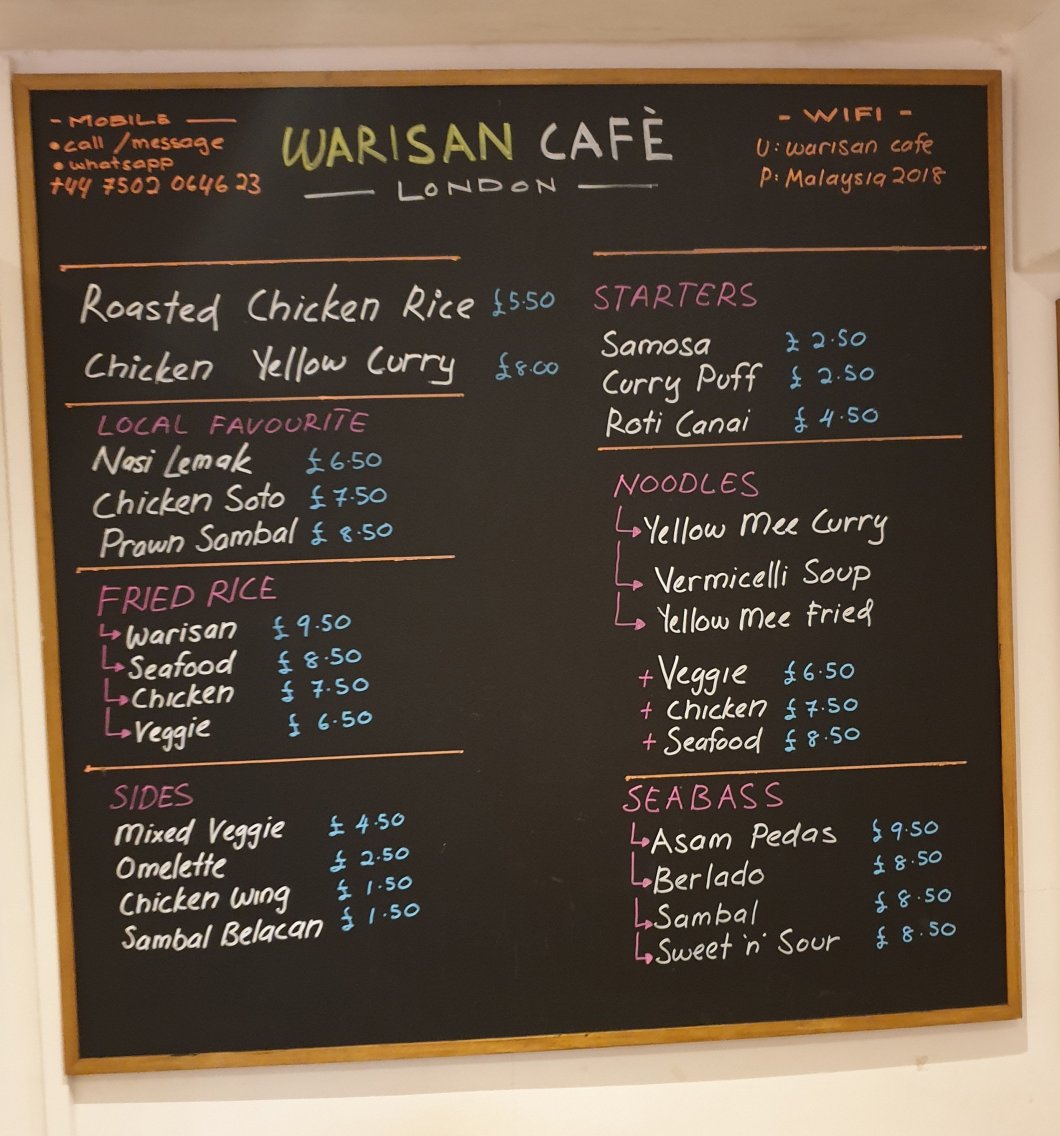 - MOBILE -
• call / message
• whatsapp
+44 7502 0646 23
WARISAN CAFÈ
- LONDON -
- WIFI -
U: warisan cafe
P: Malaysia 2018
Roasted Chicken Rice £5.50
Chicken Yellow Curry £8.00
LOCAL FAVOURITE
Nasi Lemak £6.50
Chicken Soto £7.50
Prawn Sambal £8.50
FRIED RICE
Warisan £9.50
Seafood £8.50
Chicken £7.50
Veggie £6.50
SIDES
Mixed Veggie £4.50
Omelette £2.50
Chicken Wing £1.50
Sambal Belacan £1.50
STARTERS
Samosa £2.50
Curry Puff £2.50
Roti Canai £4.50
NOODLES
Yellow Mee Curry
Vermicelli Soup
Yellow Mee Fried
+ Veggie £6.50
+ Chicken £7.50
+ Seafood £8.50
SEABASS
Asam Pedas £9.50
Berlado £8.50
Sambal £8.50
Sweet 'n' Sour £8.50